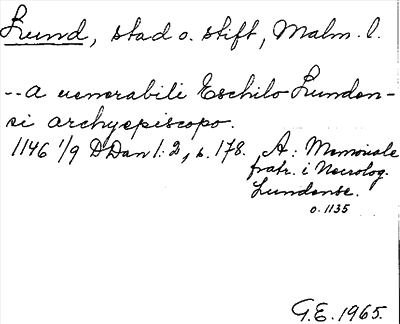 Lund, stad o. stift, Malm. l.
-- a venerabili Eschilo Lunden-
si archyepiscopo.
1146 1/9 DDan 1:2, s. 178. A: Memoriale
fratr. i Necrolog.
Lundense.
o. 1135
G.E. 1965.